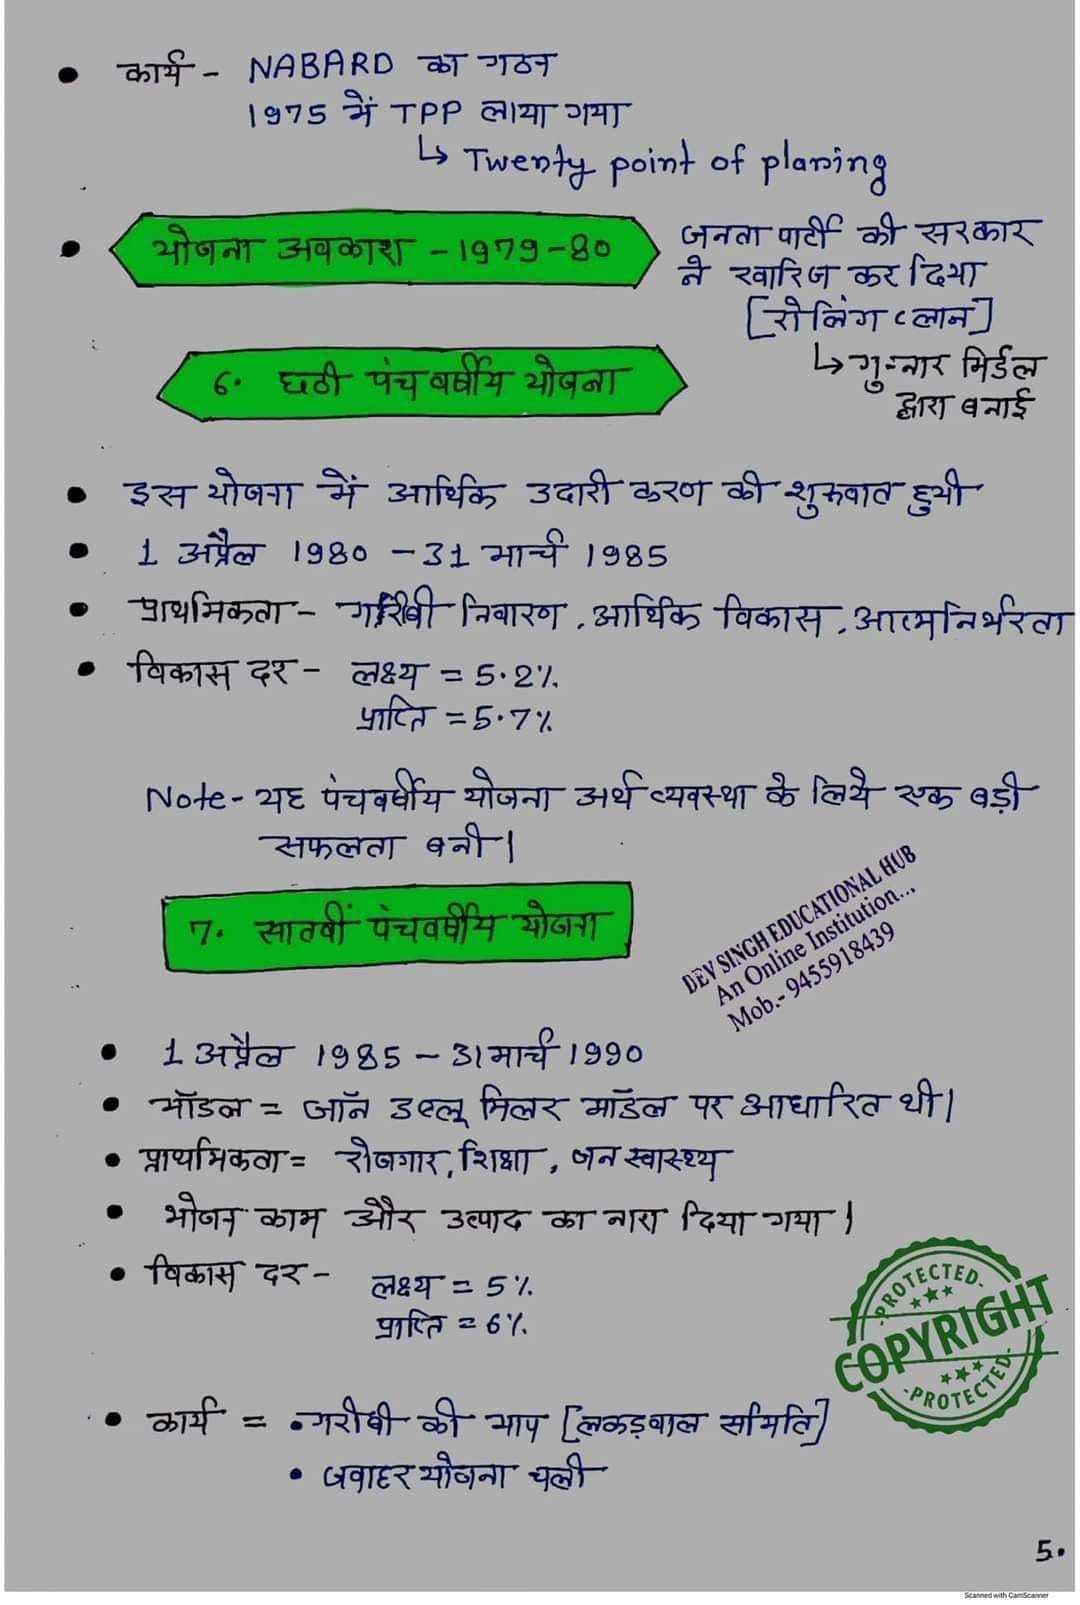 • कार्य - NABARD का गठन
1975 में TPP लाया गया
↳ Twenty point of planing
• योजना अवकाश - 1979-80
जनता पार्टी की सरकार
ने खारिज कर दिया
[रोलिंग प्लान]
↳ गुन्नार मिर्डल
द्वारा बनाई
6. छठी पंचवर्षीय योजना
• इस योजना में आर्थिक उदारीकरण की शुरुवात हुयी
• 1 अप्रैल 1980 - 31 मार्च 1985
• प्राथमिकता - गरिबी निवारण, आर्थिक विकास, आत्मनिर्भरता
• विकास दर - लक्ष्य = 5.2%
प्राप्ति = 5.7%
Note - यह पंचवर्षीय योजना अर्थव्यवस्था के लिये एक बड़ी
सफलता बनी।
7. सातवीं पंचवर्षीय योजना
DEV SINGH EDUCATIONAL HUB
An Online Institution...
Mob.- 9455918439
• 1 अप्रैल 1985 - 31 मार्च 1990
• मॉडल = जॉन डब्लू मिलर मॉडल पर आधारित थी।
• प्राथमिकता = रोजगार, शिक्षा, जन स्वास्थ्य
• भोजन काम और उत्पाद का नारा दिया गया।
• विकास दर - लक्ष्य = 5%
प्राप्ति = 6%
PROTECTED
COPYRIGHT
PROTECTED
• कार्य = • गरीबी की माप [लकड़वाल समिति]
• जवाहर योजना चली
5.
Scanned with CamScanner